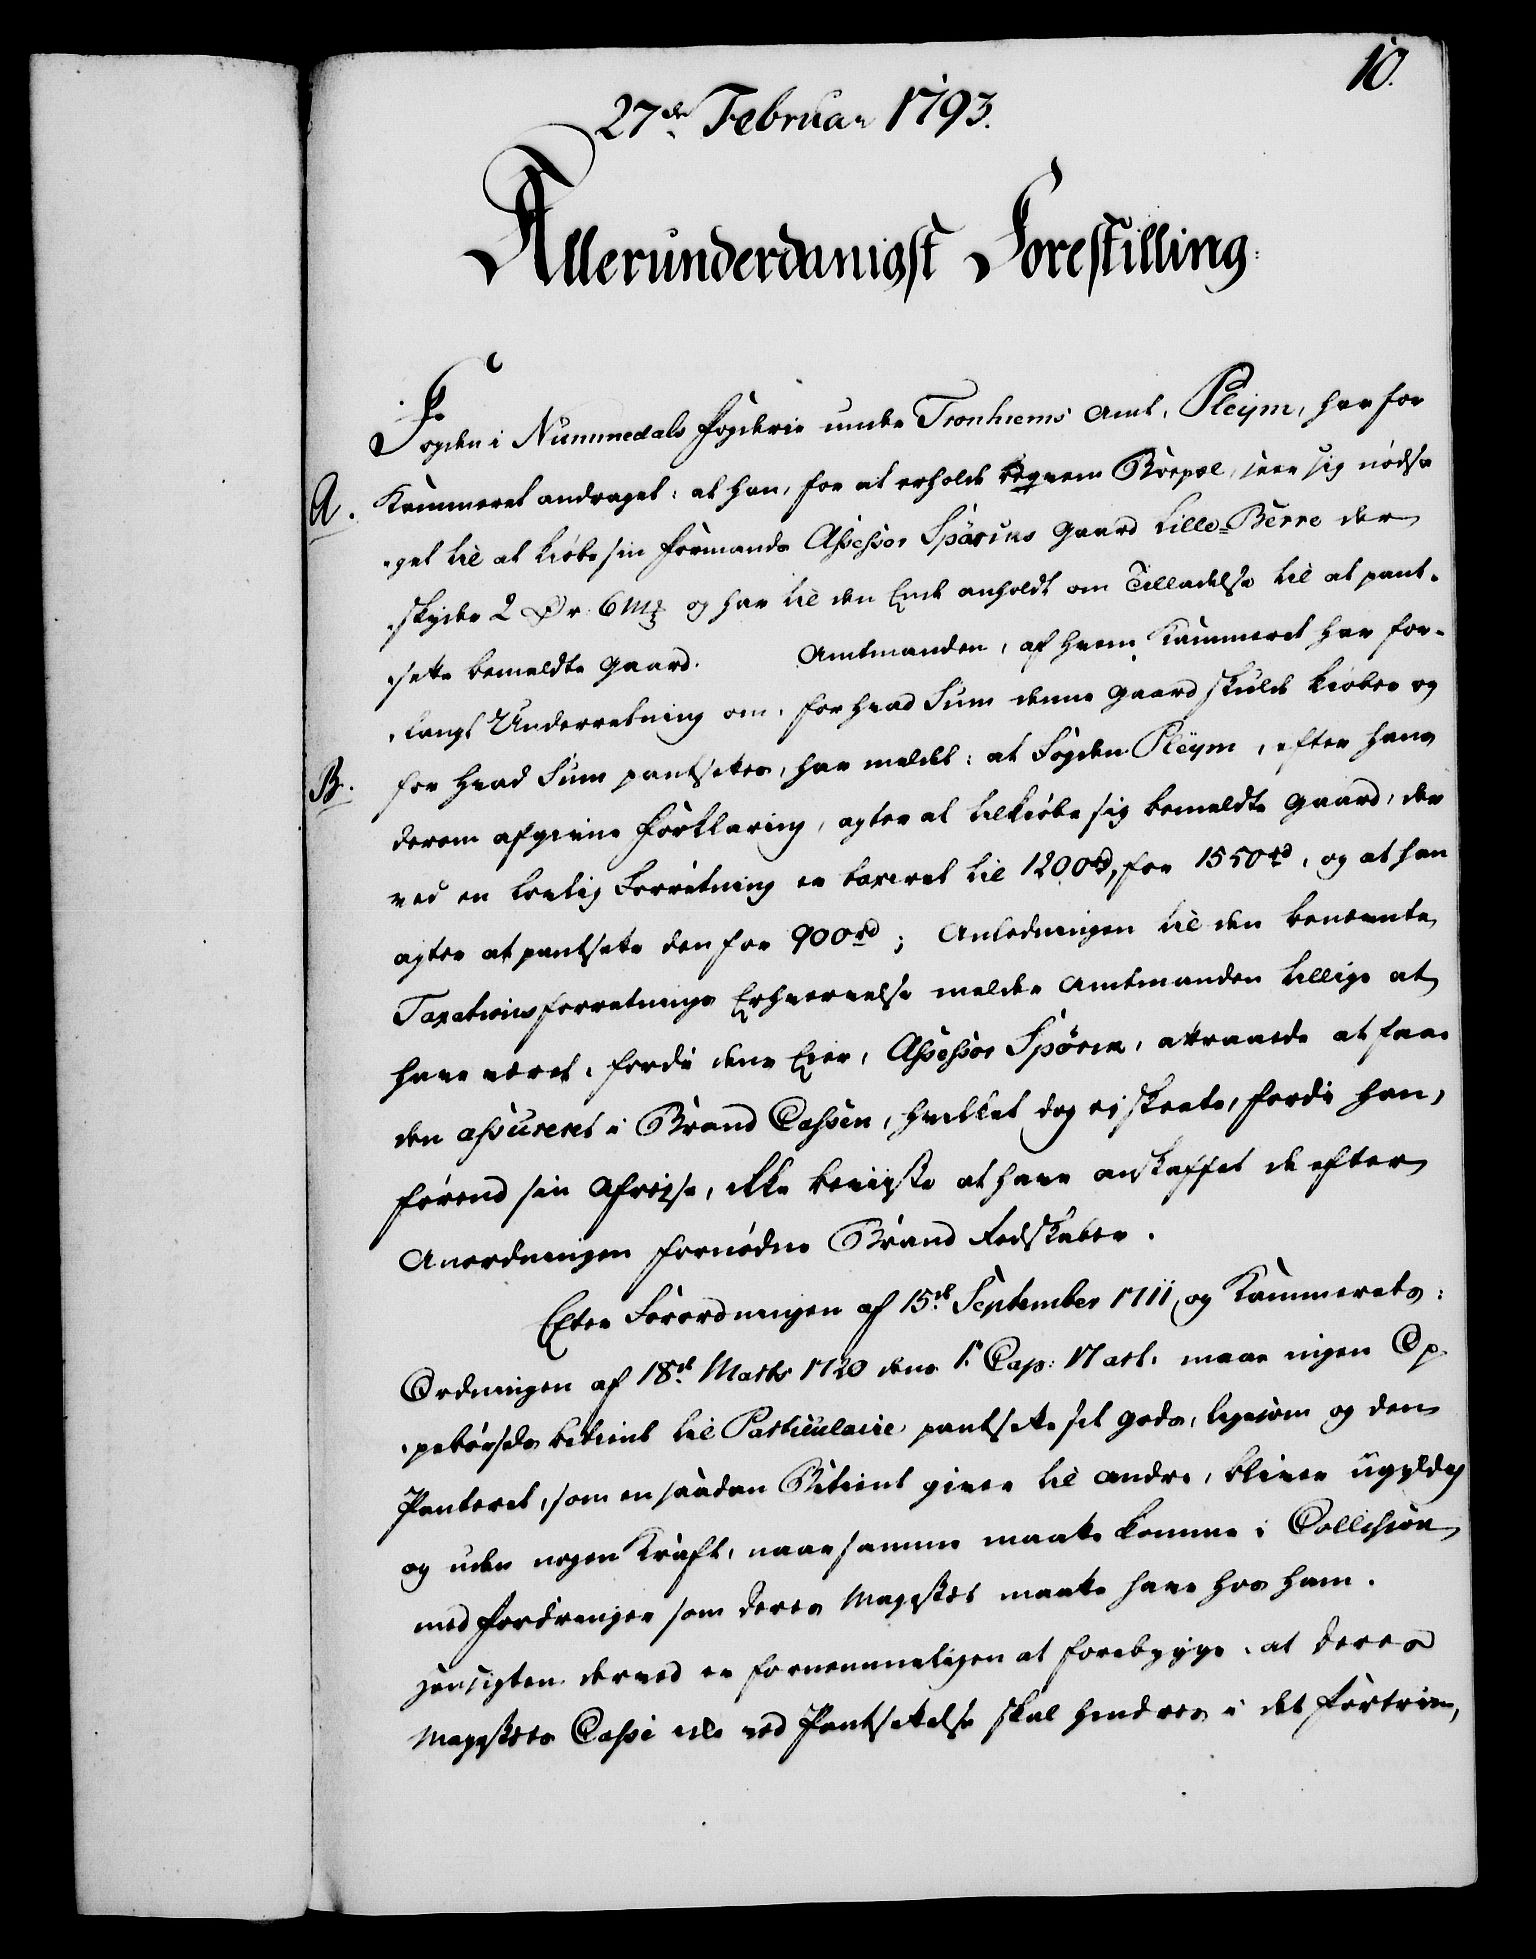 10.
27de Februar 1793.
Allerunderdanigst Forestilling.
Fogden i Nummedals Fogderie under Tronhiems Amt, Pleÿm, har for
A. Kammeret andraget: at han, for at erholde beqvem Boepæl, seer sig nødsa
get til at kiøbe sin Formands Assessor Spörcks Gaard Lille-Berre der
skylder 2 Ør. 6 Mk og har til den Ende anholdt om Tilladelse til at pant-
sætte bemeldte Gaard. Amtmanden, af hvem Kammeret har for-
langt Underretning om, for hvad Sum denne Gaard skulde kiøbes og
B. for hvad Sum pantsættes, har meldet: at Fogden Pleÿm, efter hans
derom afgivne Forklaring, agter at tilkiøbe sig bemeldte Gaard, der
ved en lovlig Forretning er taxeret til 1200rd, for 1550rd, og at han
agter at pantsætte den for 900rd; Anledningen til den benævnte
Taxations forretnings Erhvervelse melder Amtmanden tillige at
have været, fordi dens Eier, Assessor Spörck, attraaede at faae
den assureret i Brand Cassen, hvilket dog ej skeete, fordi han,
førend sin Afrejse, ikke beviiste at have anskaffet de efter
Anordningen fornødne Brand Redskaber.
Efter Forordningen af 15de September 1711, og Kammerets-
Ordningen af 18de Marts 1720 dens 1. Cap: 17 art. maae ingen Op-
pebørsels betient til Particulaire pantsætte sit Gods, ligesom og den
Panteret, som en saadan Betient giver til andre, bliver ugyldig
og uden nogen Kraft, naar samme maatte komme i Collission
med Fordringer som Deres Majestet maatte have hos ham.
Hensigten derved er fornemmeligen at forebygge, at Deres
Majestets Casse ikke ved Pantsættelse skal hindres i det Fortrin,